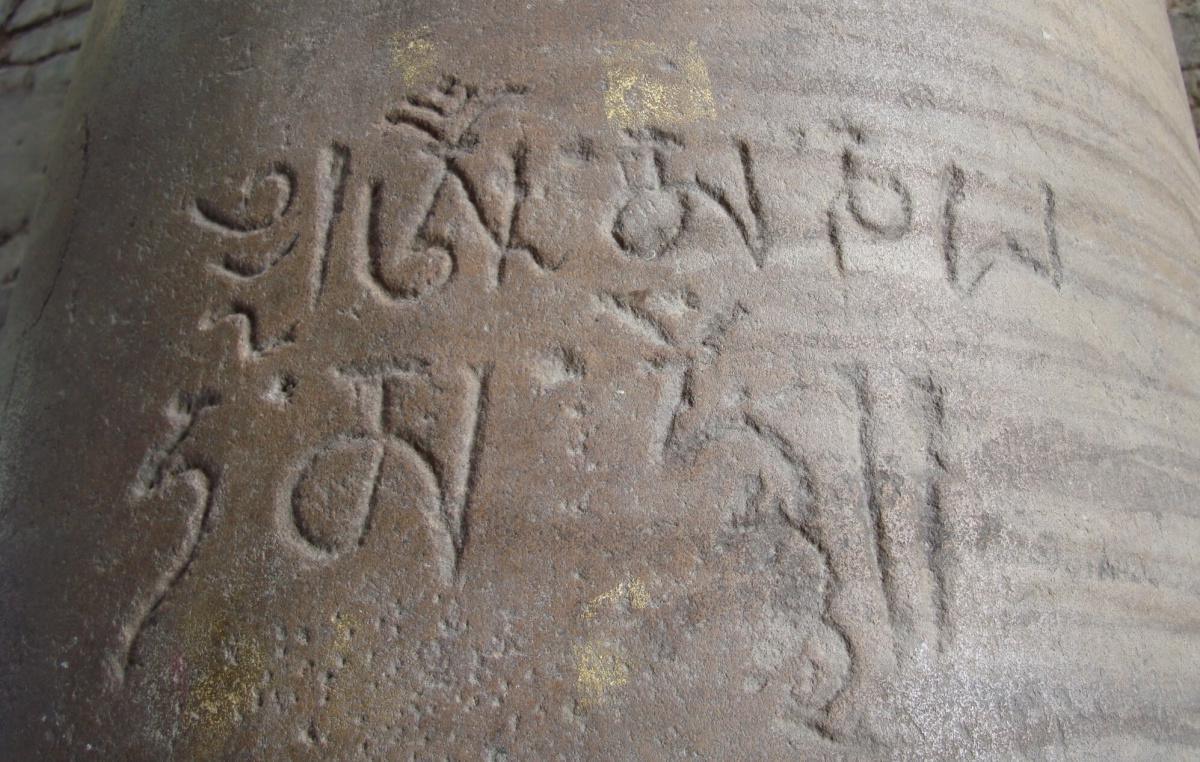 ༄། ཨོཾ་མ་ཎི་པ
ད་མེ་ཧཱུྃ༎